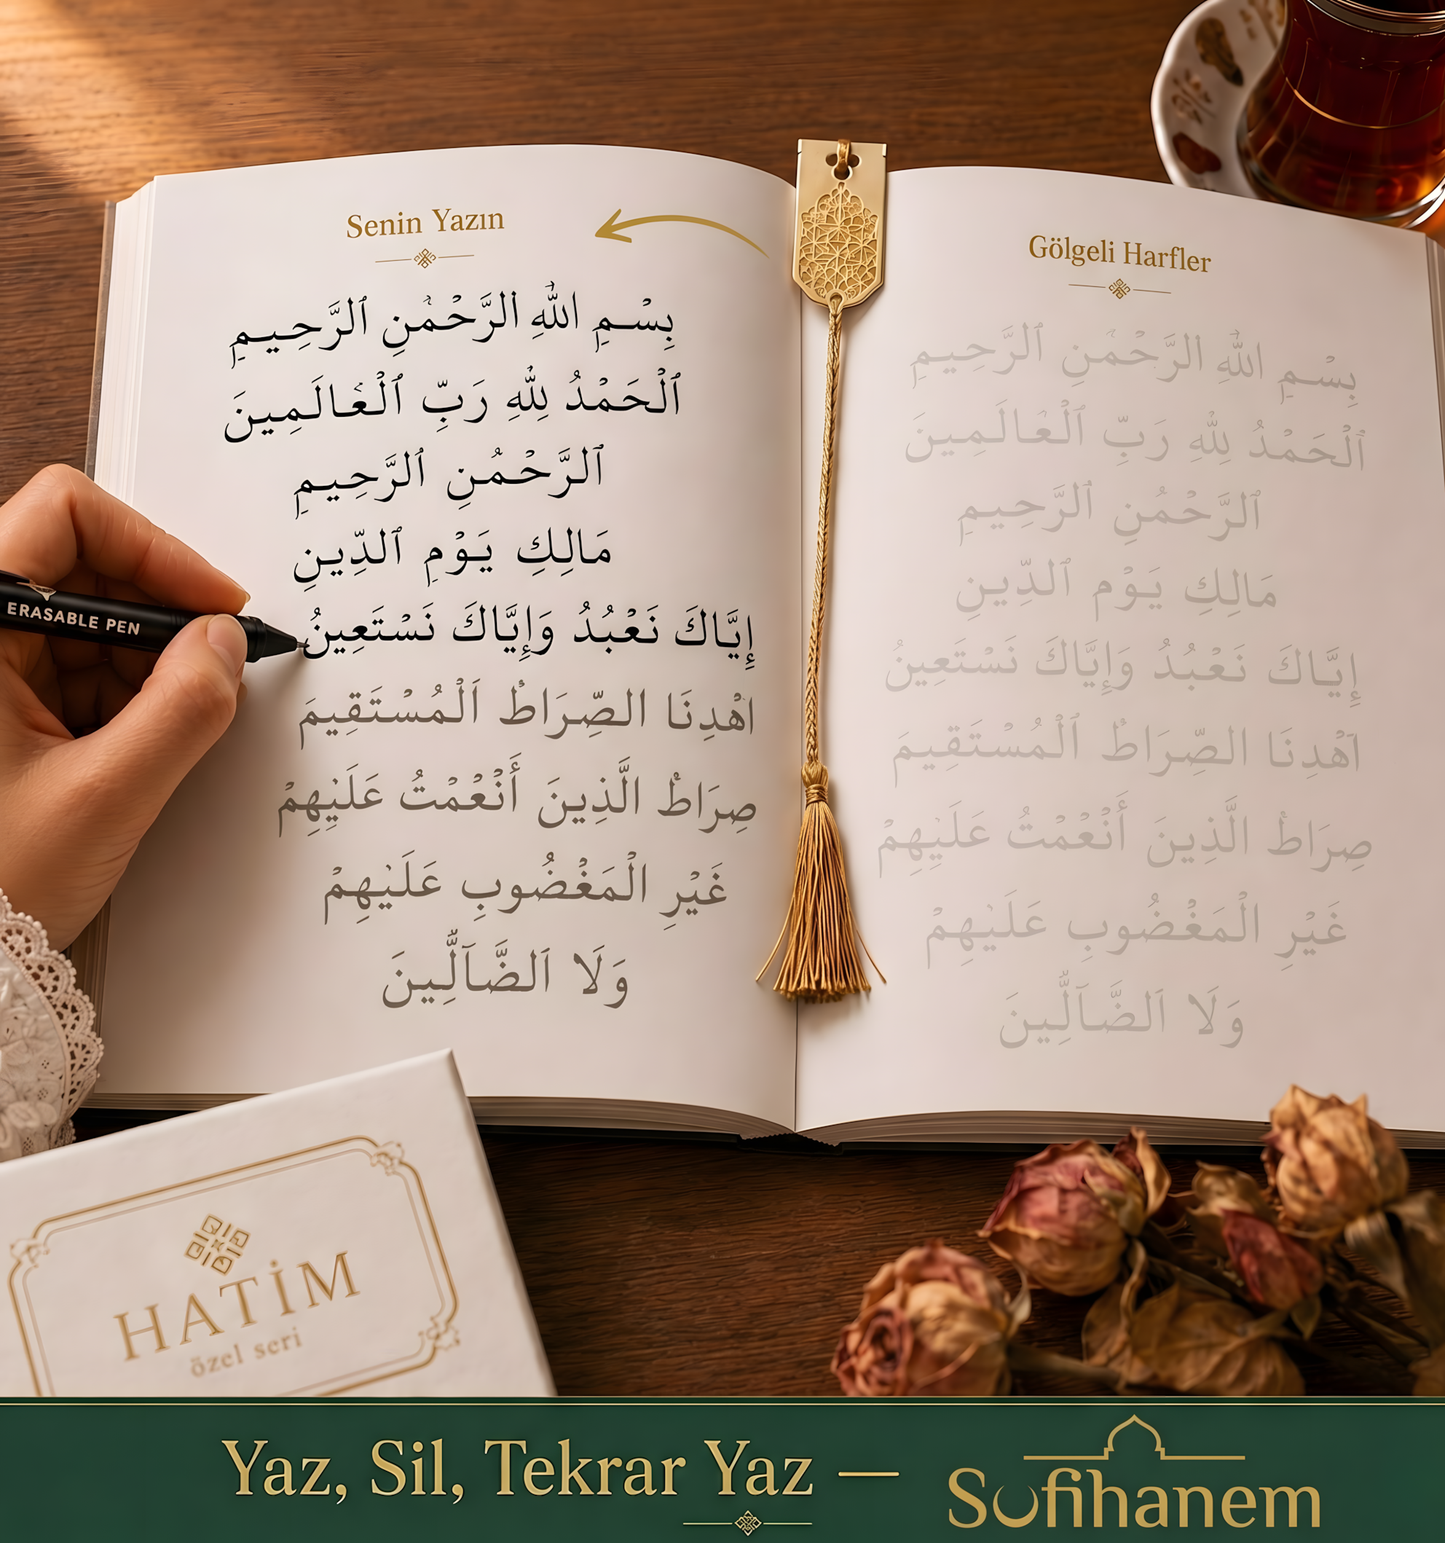 Senin Yazın
بِسْمِ اللّٰهِ الرَّحْمٰنِ ٱلرَّحِيمِ
ٱلْحَمْدُ لِلّٰهِ رَبِّ ٱلْعَالَمِينَ
ٱلرَّحْمٰنِ ٱلرَّحِيمِ
مَالِكِ يَوْمِ ٱلدِّينِ
إِيَّاكَ نَعْبُدُ وَإِيَّاكَ نَسْتَعِينُ
اهْدِنَا الصِّرَاطَ ٱلْمُسْتَقِيمَ
صِرَاطَ الَّذِينَ أَنْعَمْتَ عَلَيْهِمْ
غَيْرِ الْمَغْضُوبِ عَلَيْهِمْ
وَلَا ٱلضَّآلِّينَ
Gölgeli Harfler
بِسْمِ اللّٰهِ الرَّحْمٰنِ ٱلرَّحِيمِ
ٱلْحَمْدُ لِلّٰهِ رَبِّ ٱلْعَالَمِينَ
ٱلرَّحْمٰنِ ٱلرَّحِيمِ
مَالِكِ يَوْمِ ٱلدِّينِ
إِيَّاكَ نَعْبُدُ وَإِيَّاكَ نَسْتَعِينُ
اهْدِنَا الصِّرَاطَ ٱلْمُسْتَقِيمَ
صِرَاطَ الَّذِينَ أَنْعَمْتَ عَلَيْهِمْ
غَيْرِ الْمَغْضُوبِ عَلَيْهِمْ
وَلَا ٱلضَّآلِّينَ
ERASABLE PEN
HATİM
özel seri
Yaz, Sil, Tekrar Yaz —
Sufihanem